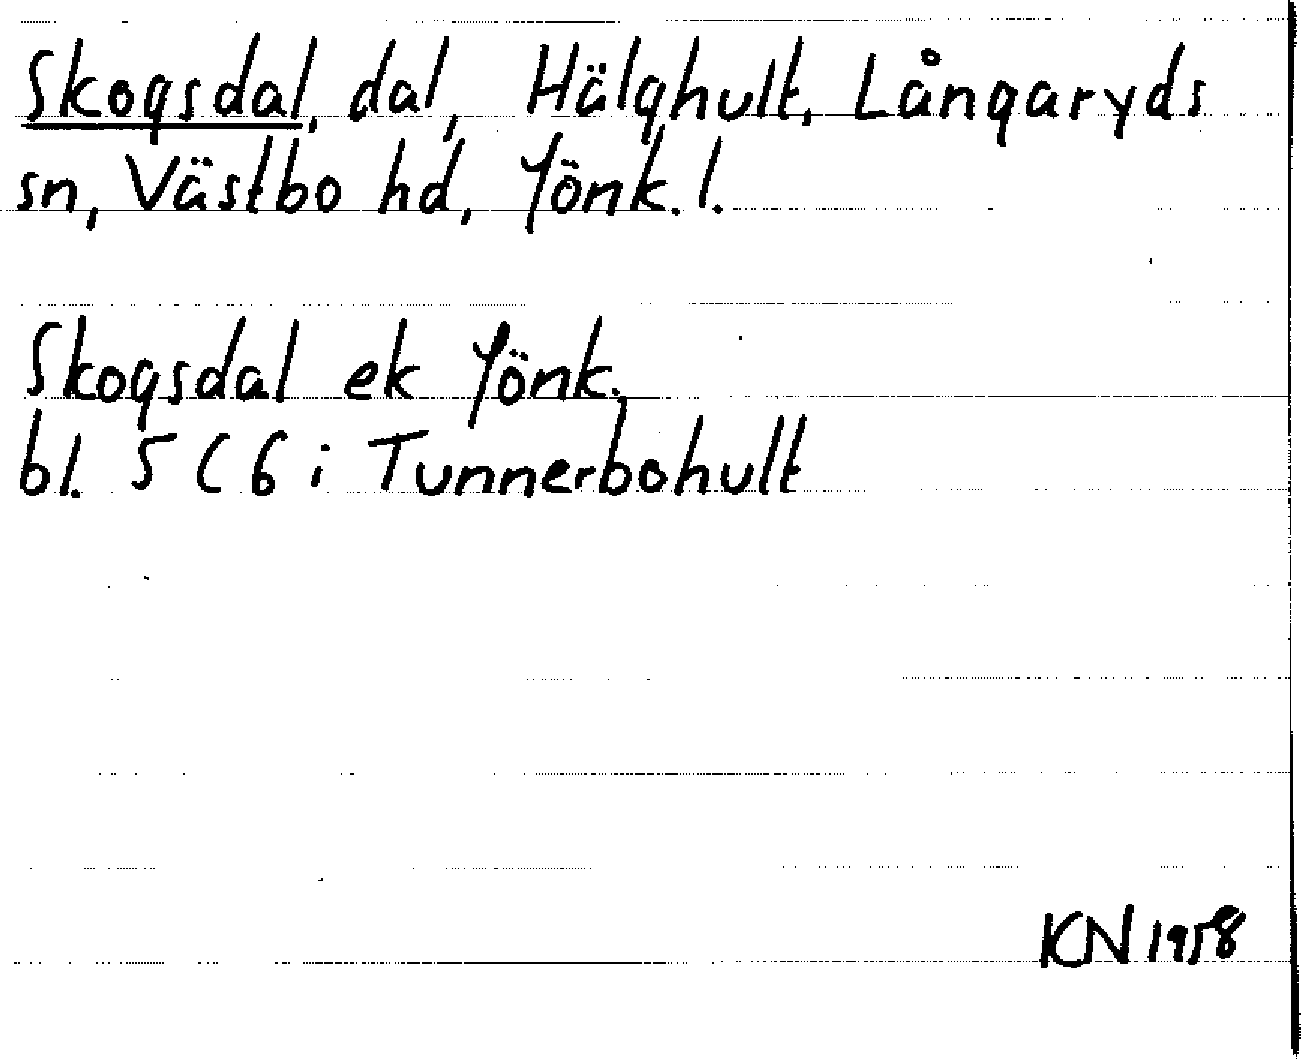 Skogsdal, dal, Hälghult, Långaryds
sn, Västbo hd, Jönk. l.
Skogsdal ek Jönk.
bl. 5 C 6 i Tunnerbohult
KN 1958